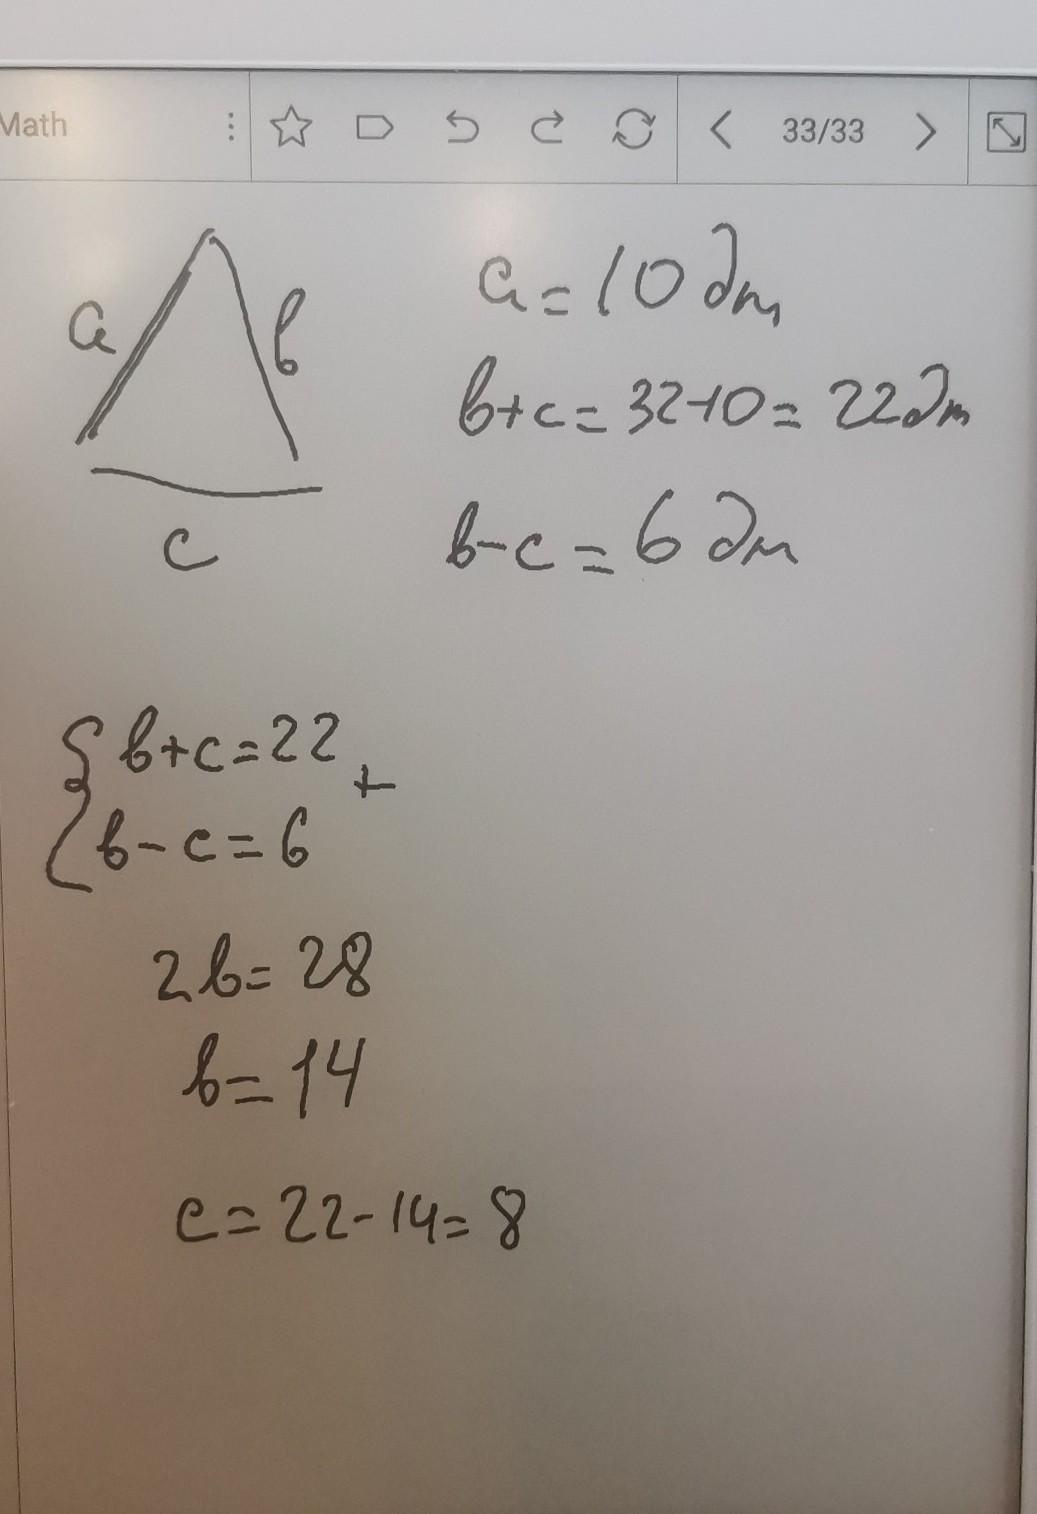 Math
33/33
a
b
c
a = 10 дм
b+c = 32-10 = 22 дм
b-c = 6 дм
b+c=22
+
b-c=6
2b= 28
b= 14
c= 22-14= 8